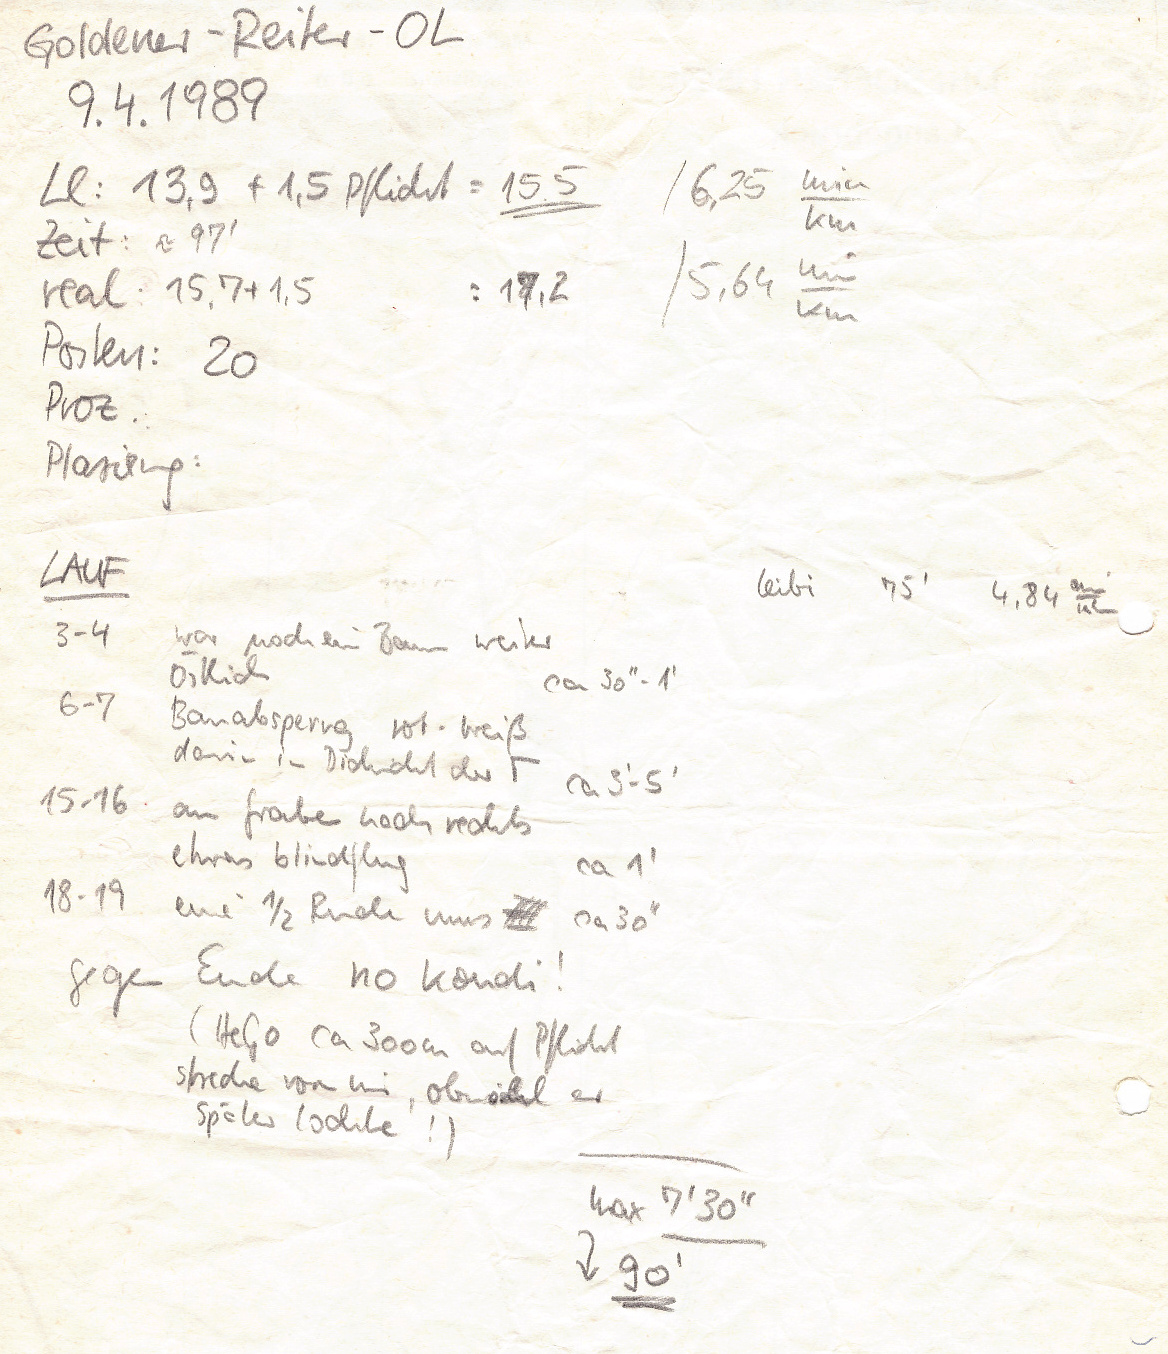 Goldener-Reiter-OL
9.4.1989
LL: 13,9 + 1,5 Pflicht = 15.5 / 6,25 min/km
Zeit: ≈ 97'
real: 15,7 + 1,5 = 17,2 / 5,64 min/km
Posten: 20
Proz.:
Plazierung:
LAUF
leibi 75' 4,84 min/km
3-4 war noch ein Baum weiter
östlich ca 30"-1'
6-7 Bauabsperrung rot-weiß
dann in Dickicht der ca 3'-5'
15-16 am Graben nach rechts
etwas blindflug ca 1'
18-19 eine 1/2 Runde ums ca 30"
gegen Ende no Kondi!
(HeGo ca 300m auf Pflicht
strecke vor mir, obwohl er
später lochte!)
max 7'30"
↓ 90'